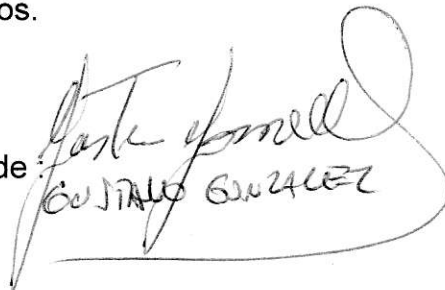 os.
de :
GUSTAVO GONZALEZ